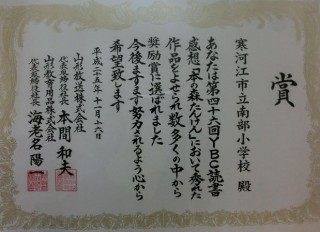 賞
寒河江市立南部小学校 殿
あなたは第四十六回YBC読書
感想「本の森たんけん」において秀れた
作品をよせられ数多くの中から
奨励賞に選ばれました
今後ますます努力されるよう心から
希望致します
平成二十五年十一月十六日
山形放送株式会社
代表取締役社長 本間和夫
山形教育用品株式会社
代表取締役社長 海老名陽一